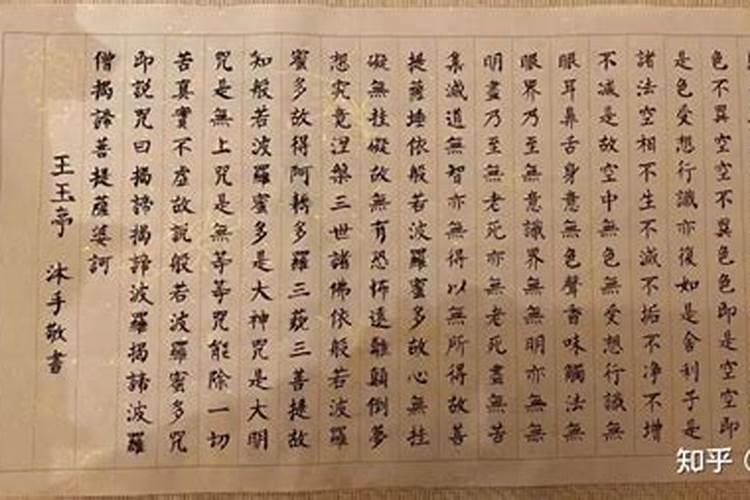 色不異空空不異色色即是空空即
是色受想行識亦復如是舍利子是
諸法空相不生不滅不垢不净不增
不减是故空中無色無受想行識無
眼耳鼻舌身意無色聲香味觸法無
眼界乃至無意識界無無明亦無無
明盡乃至無老死亦無老死盡無苦
集滅道無智亦無得以無所得故菩
提薩埵依般若波羅蜜多故心無挂
礙無挂礙故無有恐怖遠離顛倒夢
想究竟涅槃三世諸佛依般若波羅
蜜多故得阿耨多羅三藐三菩提故
知般若波羅蜜多是大神咒是大明
咒是無上咒是無等等咒能除一切
苦真實不虛故說般若波羅蜜多咒
即說咒曰揭諦揭諦波羅揭諦波羅
僧揭諦菩提薩婆訶
王玉亭 沐手敬書
知乎